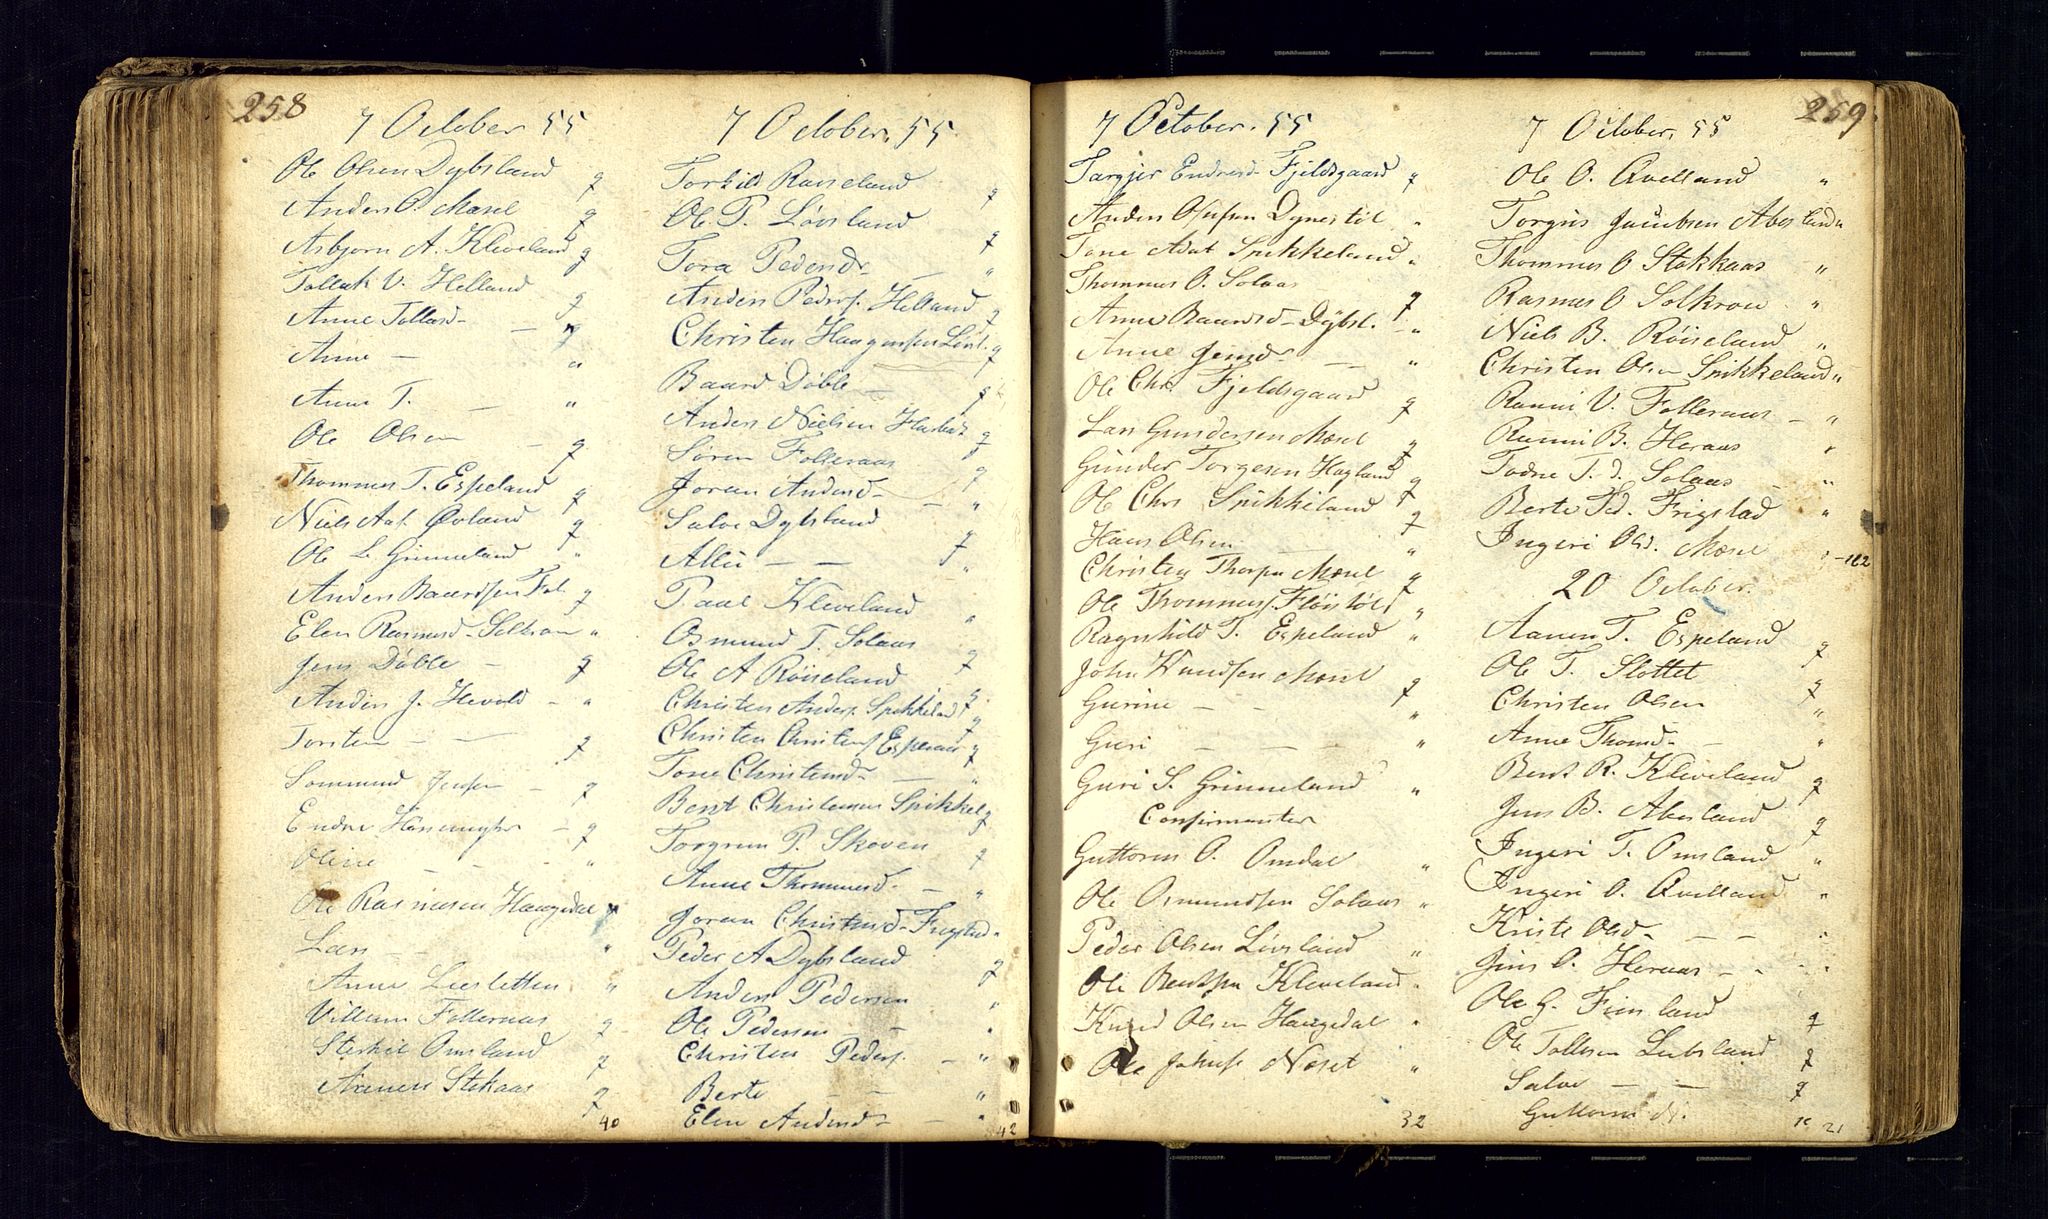 258
7 October 55
Ole Olsen Dybsland g
Anders O. Mosel g
Asbjørn A. Kleveland g
Tollak V. Helland g
Anne Tollasd - - g
Anne - "
Anne T. - "
Ole Olsen - g
Thommes T. Espeland g
Niels Aas. Øvland g
Ole L. Grimeland "
Anders Baardsen Fol. g
Elen Rasmusd - Solkron "
Jens Döble - g
Anders J. Hevold - "
Torsten - - g
Sommund Jensen - g
Endre - g
Oline - - "
Ole Rasmusen Haugedal g
Lars - - "
Anne Liesletten "
Villum Folleraas g
Sterkil Omsland g
Asmen Stokaas g
40
7 October. 55
Torkild Røiseland g
Ole P. Løvsland g
Tora Pedersdr - "
Anders Peders. Helland g
Christen Haagensen Løvl. g
Baard Döble - g
Anders Nielsen g
Søren Folleraas g
Joran Andersd - - "
Salve Dybsland g
Alli - - "
Paul Kleveland "
Osmund T. Solaas g
Ole A Røiseland g
Christen Anders. Spikkeland g
Christen Christens Espeland g
Tone Christensd - - "
Bent Christensen Spikkel g
Torgrim P. Skoven g
Anne Thommesd - - "
Joran Christensd - Frigstad "
Peder A Dybsland g
Anders Pedersen "
Ole Pedersen - - "
Christen Peders. - "
Berte - - "
Elen Andersd - - "
42
7 October. 55
Targjer Endresd - Fjeldsgaard g
Anders Olufsen Dynestøl "
Tone Adat Spikkeland "
Thommes O. Solaas - g
Anne Baardsd - Dybsl. - "
Anne Jensd - - - "
Ole Chr. Fjeldsgaard g
Lars Gundersen Mosel g
Gunder Torgesen Hagland g
Ole Chrs Spikkeland g
Hans Olsen - "
Christen Thorsen Mosel g
Ole Thommes. Fløistøl "
Ragnhild T. Espeland "
John Knudsen Mosel g
Gurine - - "
Guri - - "
Guri S. Grimeland "
Confirmanter
Guttorm O. Omdal "
Ole Osmundsen Solaas "
Peder Olsen Løvsland "
Ole Bentsen Kleveland "
Knud Olsen Haugedal "
Ole Noset "
32
259
7 October. 55
Ole O. Qvelland "
Torgius Jacobsen Abesland "
Thommes O Stokkaas "
Rasmus O Solkron "
Niels B. Røiseland "
Christen Olsen Spikkeland "
Ranni V. Folleraas - "
Ranni B. Heraas "
Todne T. d. Solaas - "
Berte Td. Frigstad "
Ingeri Olsd. Mosel "
20 October.
Aanen T. Espeland g
Ole T. Slottet g
Christen Olsen "
Anne Thomd - - "
Bent R. Kleveland g
Jens B. Abesland g
Ingeri T. Omsland "
Ingeri O. Qvelland "
Kirste Olsd - - - "
Jens O. Heraas - "
Ole G. Finsland g
Ole Tollesen Lubsland g
Salve - - g
Guttorm
21